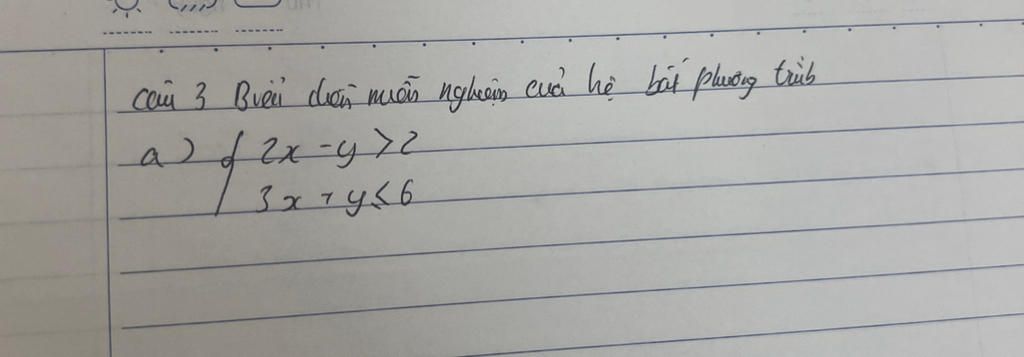 câu 3 Biểu diễn miền nghiệm của hệ bất phương trình
a) { 2x - y > 2
3x + y ≤ 6